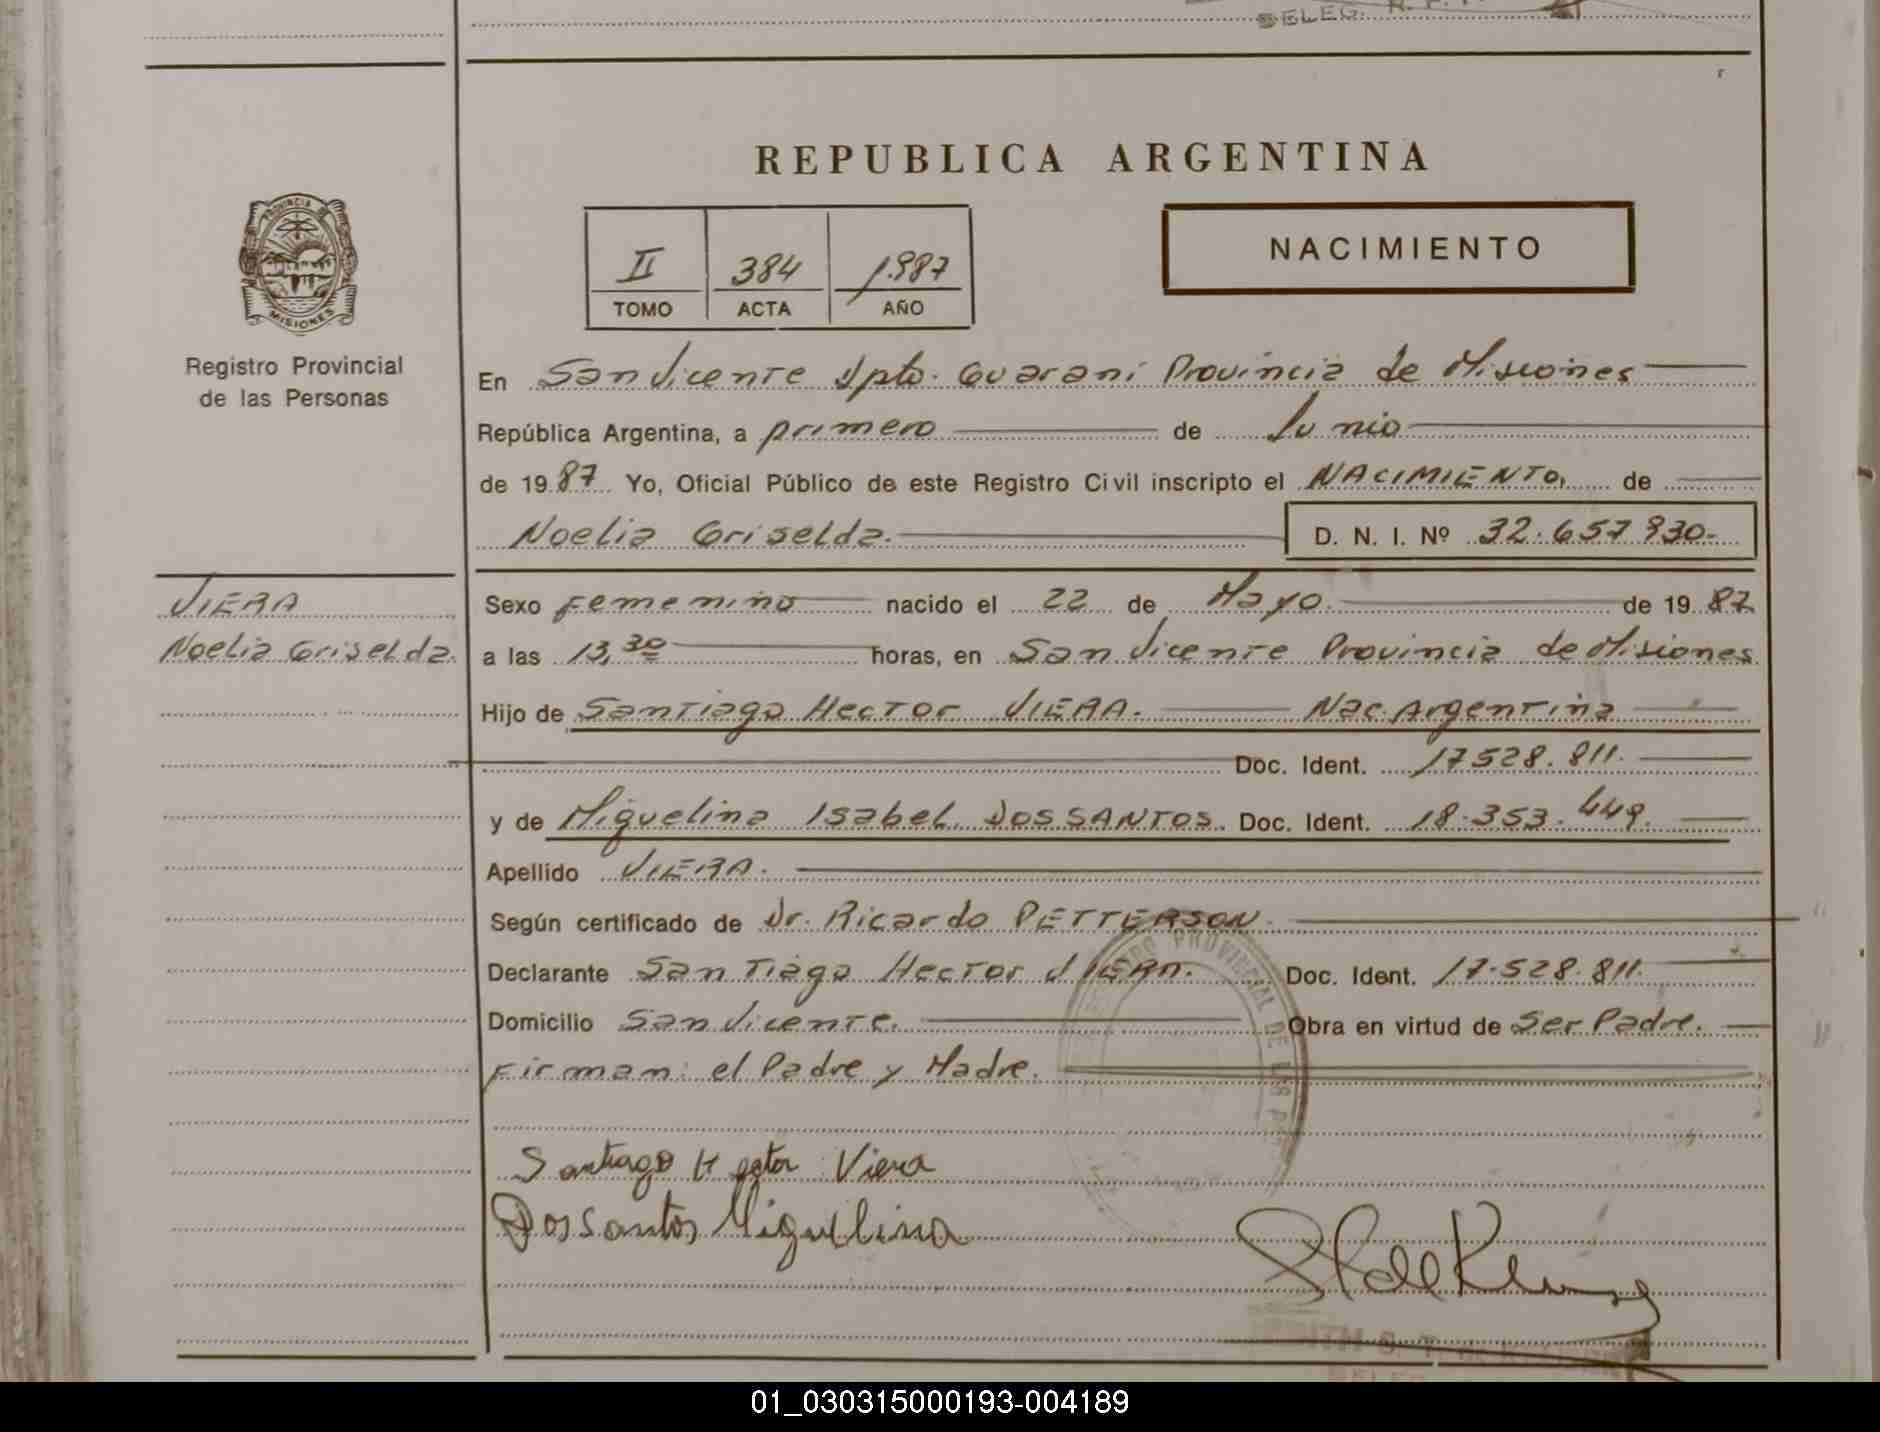 SELEG. R. P. P.
REPUBLICA ARGENTINA
PROVINCIA DE
MISIONES
Registro Provincial
de las Personas
II 384 1.987
TOMO ACTA AÑO
NACIMIENTO
En San Vicente Dpto. Guarani Provincia de Misiones
República Argentina, a primero de Junio
de 1987 Yo, Oficial Público de este Registro Civil inscripto el NACIMIENTO, de
Noelia Griselda. D. N. I. Nº 32.657.930.-
VIERA
Noelia Griselda.
Sexo Femenino nacido el 22 de Mayo. de 1987
a las 13,30 horas, en San Vicente Provincia de Misiones
Hijo de Santiago Hector VIERA. Nac. Argentina
Doc. Ident. 17528.811.
y de Miguelina Isabel DOS SANTOS. Doc. Ident. 18.353.449.
Apellido VIERA.
Según certificado de Dr. Ricardo PETTERSON.
Declarante Santiago Hector VIERA. Doc. Ident. 17.528.811.
Domicilio San Vicente. Obra en virtud de Ser Padre.
Firman: el Padre y Madre.
PROVINCIAL DE LAS
Santiago Hector Viera
Dos Santos Miguelina
01_030315000193-004189